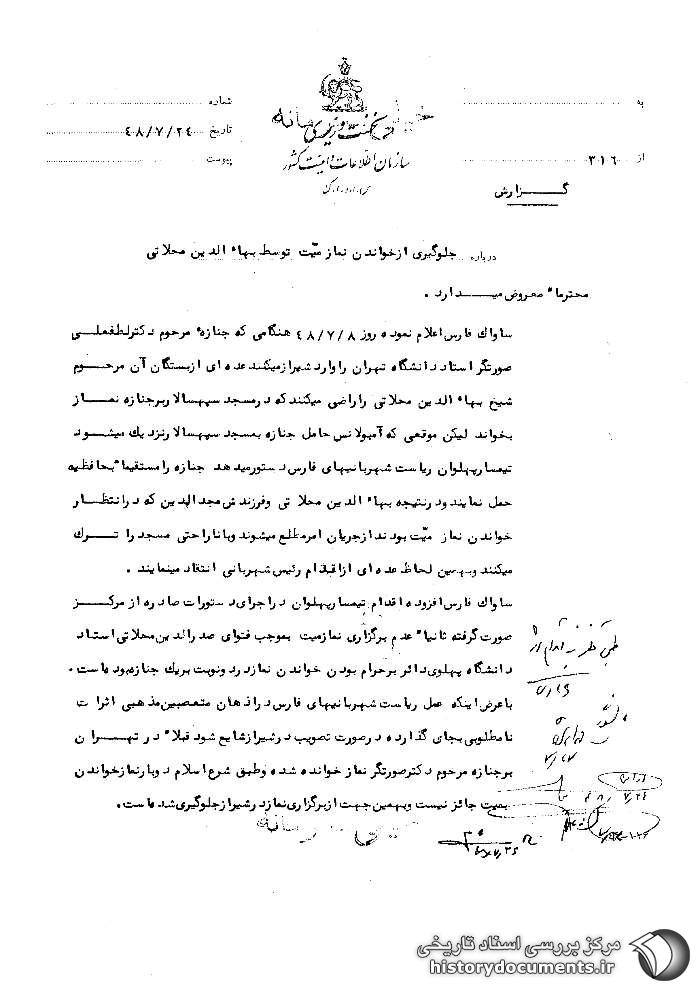 به
شماره
نخست وزیری
تاریخ ۴۸/۷/۲۴
سازمان اطلاعات و امنیت کشور
از ۳۱۶
پیوست
س.ا.و.ا.ک
گزارش
درباره جلوگیری ازخواندن نماز میّت توسط بهاء الدین محلاتی
محترماً معروض میدارد .
ساواك فارس اعلام نموده روز ۴۸/۷/۸ هنگامی که جنازه مرحوم دکترلطفعلی
صورتگر استاد دانشگاه تهران را وارد شیراز میکنند عده ای ازبستگان آن مرحوم
شیخ بهاء الدین محلاتی را راضی میکنند که درمسجد سپهسالار برجنازه نماز
بخواند لیکن موقعی که آمبولانس حامل جنازه بمسجد سپهسالار نزدیك میشود
تیمسار پهلوان ریاست شهربانیهای فارس دستورمیدهد جنازه را مستقیماً بحافظیه
حمل نمایند ودرنتیجه بهاء الدین محلاتی وفرزندش مجدالدین که درانتظار
خواندن نماز میّت بودند ازجریان امرمطلع میشوند وباناراحتی مسجد را ترك
میکنند وبهمین لحاظ عده ای ازاقدام رئیس شهربانی انتقاد مینمایند .
ساواك فارس افزوده اقدام تیمسارپهلوان دراجرای دستورات صادره ازمرکز
صورت گرفته ثانیاً عدم برگزاری نمازمیت بموجب فتوای صدرالدین محلاتی استاد
دانشگاه پهلوی دائر برحرام بودن خواندن نماز دردونوبت بریك جنازه بوده است .
باعرض اینکه عمل ریاست شهربانیهای فارس دراذهان متعصبین مذهبی اثرات
نامطلوبی بجای گذارده درصورت تصویب درشیراز شایع شود قبلاً در تهران
برجنازه مرحوم دکترصورتگر نماز خوانده شده وطبق شرع اسلام دوبارنمازخواندن
بمیت جائز نیست وبهمین جهت ازبرگزاری نماز درشیراز جلوگیری شده است .
مرکز بررسی اسناد تاریخی
historydocuments.ir